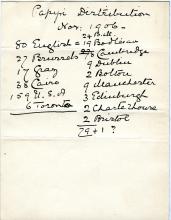 Papyri Distribution
Nov. 1906.
24 Brit.
80 English = 19 Bodleian
27 Brussels 8 Cambridge
17 Graz 9 Dublin
38 Cairo 2 Bolton
159 U.S.A 9 Manchester
6 Toronto 3 Edinburgh
2 Charterhouse
2 Bristol
79 + 1 ?